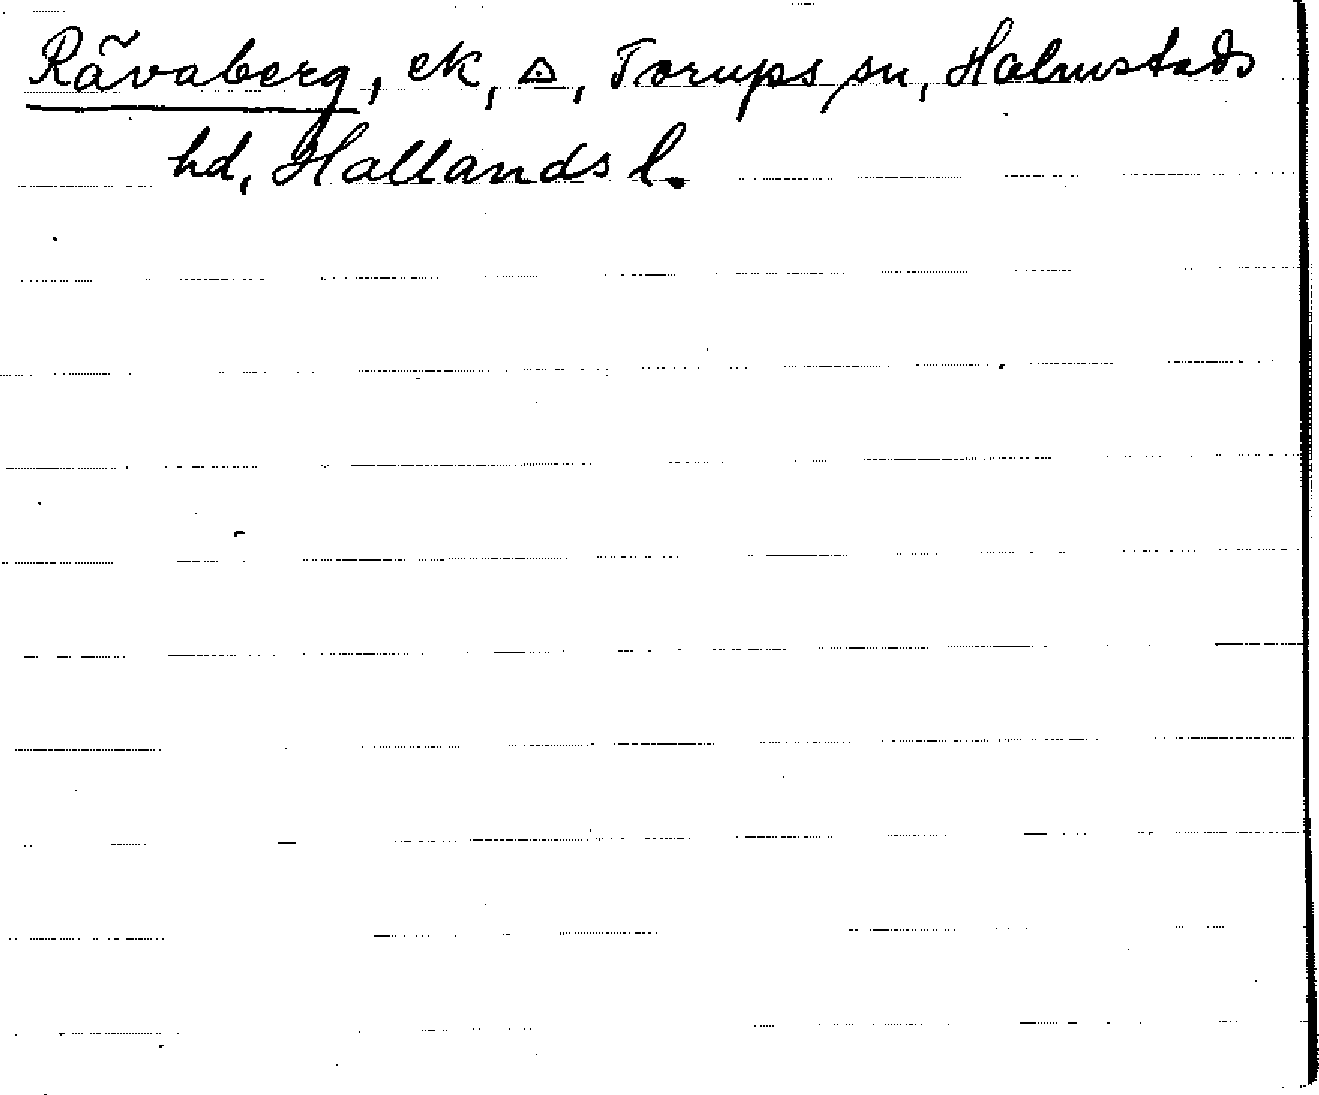 Rävaberg, ek, ◬, Torups sn, Halmstads
hd, Hallands l.